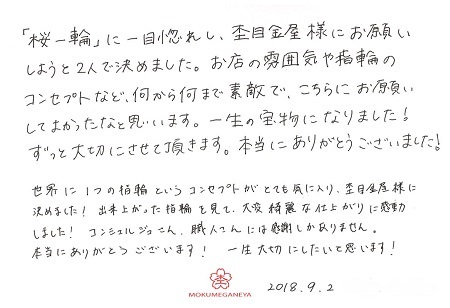 「桜一輪」に一目惚れし、杢目金屋様にお願い
しようと2人で決めました。お店の雰囲気や指輪の
コンセプトなど、何から何まで素敵で、こちらにお願い
してよかったなと思います。一生の宝物になりました!
ずっと大切にさせて頂きます。本当にありがとうございました!
世界に1つの指輪というコンセプトがとても気に入り、杢目金屋様に
決めました! 出来上がった指輪を見て、大変綺麗な仕上がりに感動
しました! コンシェルジュさん、職人さんには感謝しかありません。
本当にありがとうございます! 一生大切にしたいと思います!
MOKUMEGANEYA
2018.9.2